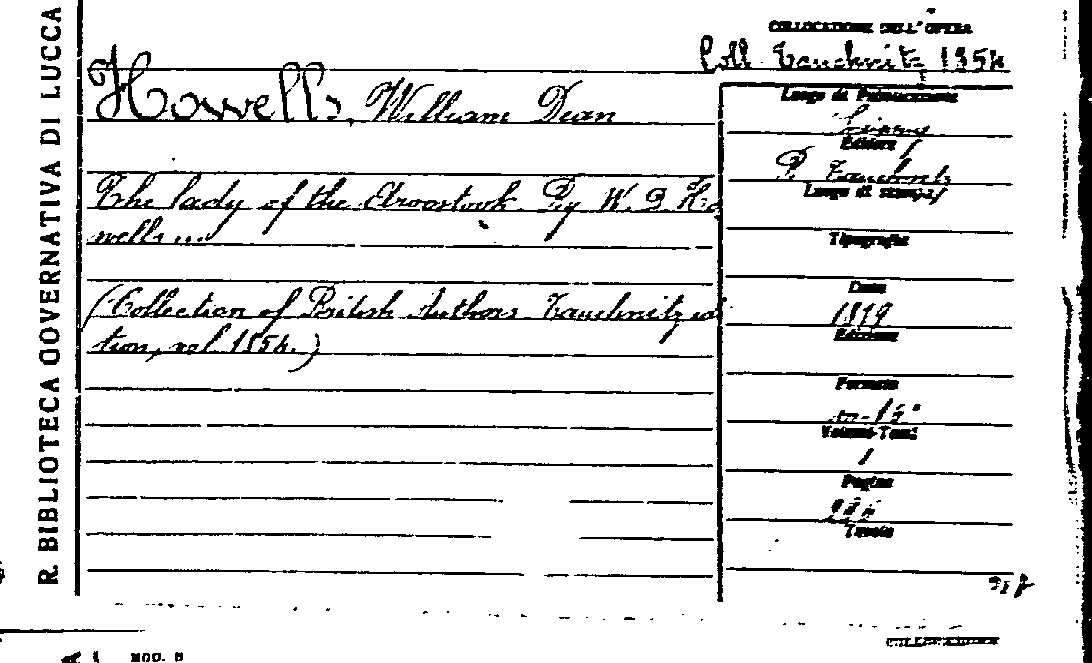 R. BIBLIOTECA GOVERNATIVA DI LUCCA
COLLOCAZIONE DELL'OPERA
Coll. Tauchnitz 1854
Howells, William Dean
Luogo di Pubblicazione
Editore
The lady of the Aroostook. By W. D. Ho
B. Tauchnitz
Luogo di stampa
wells ...
Tipografia
(Collection of British Authors Tauchnitz edi
Data
1879
tion, vol. 1854.)
Edizione
Formato
in-16°
Volumi-Tomi
1
Pagine
Tavole
MOD. B